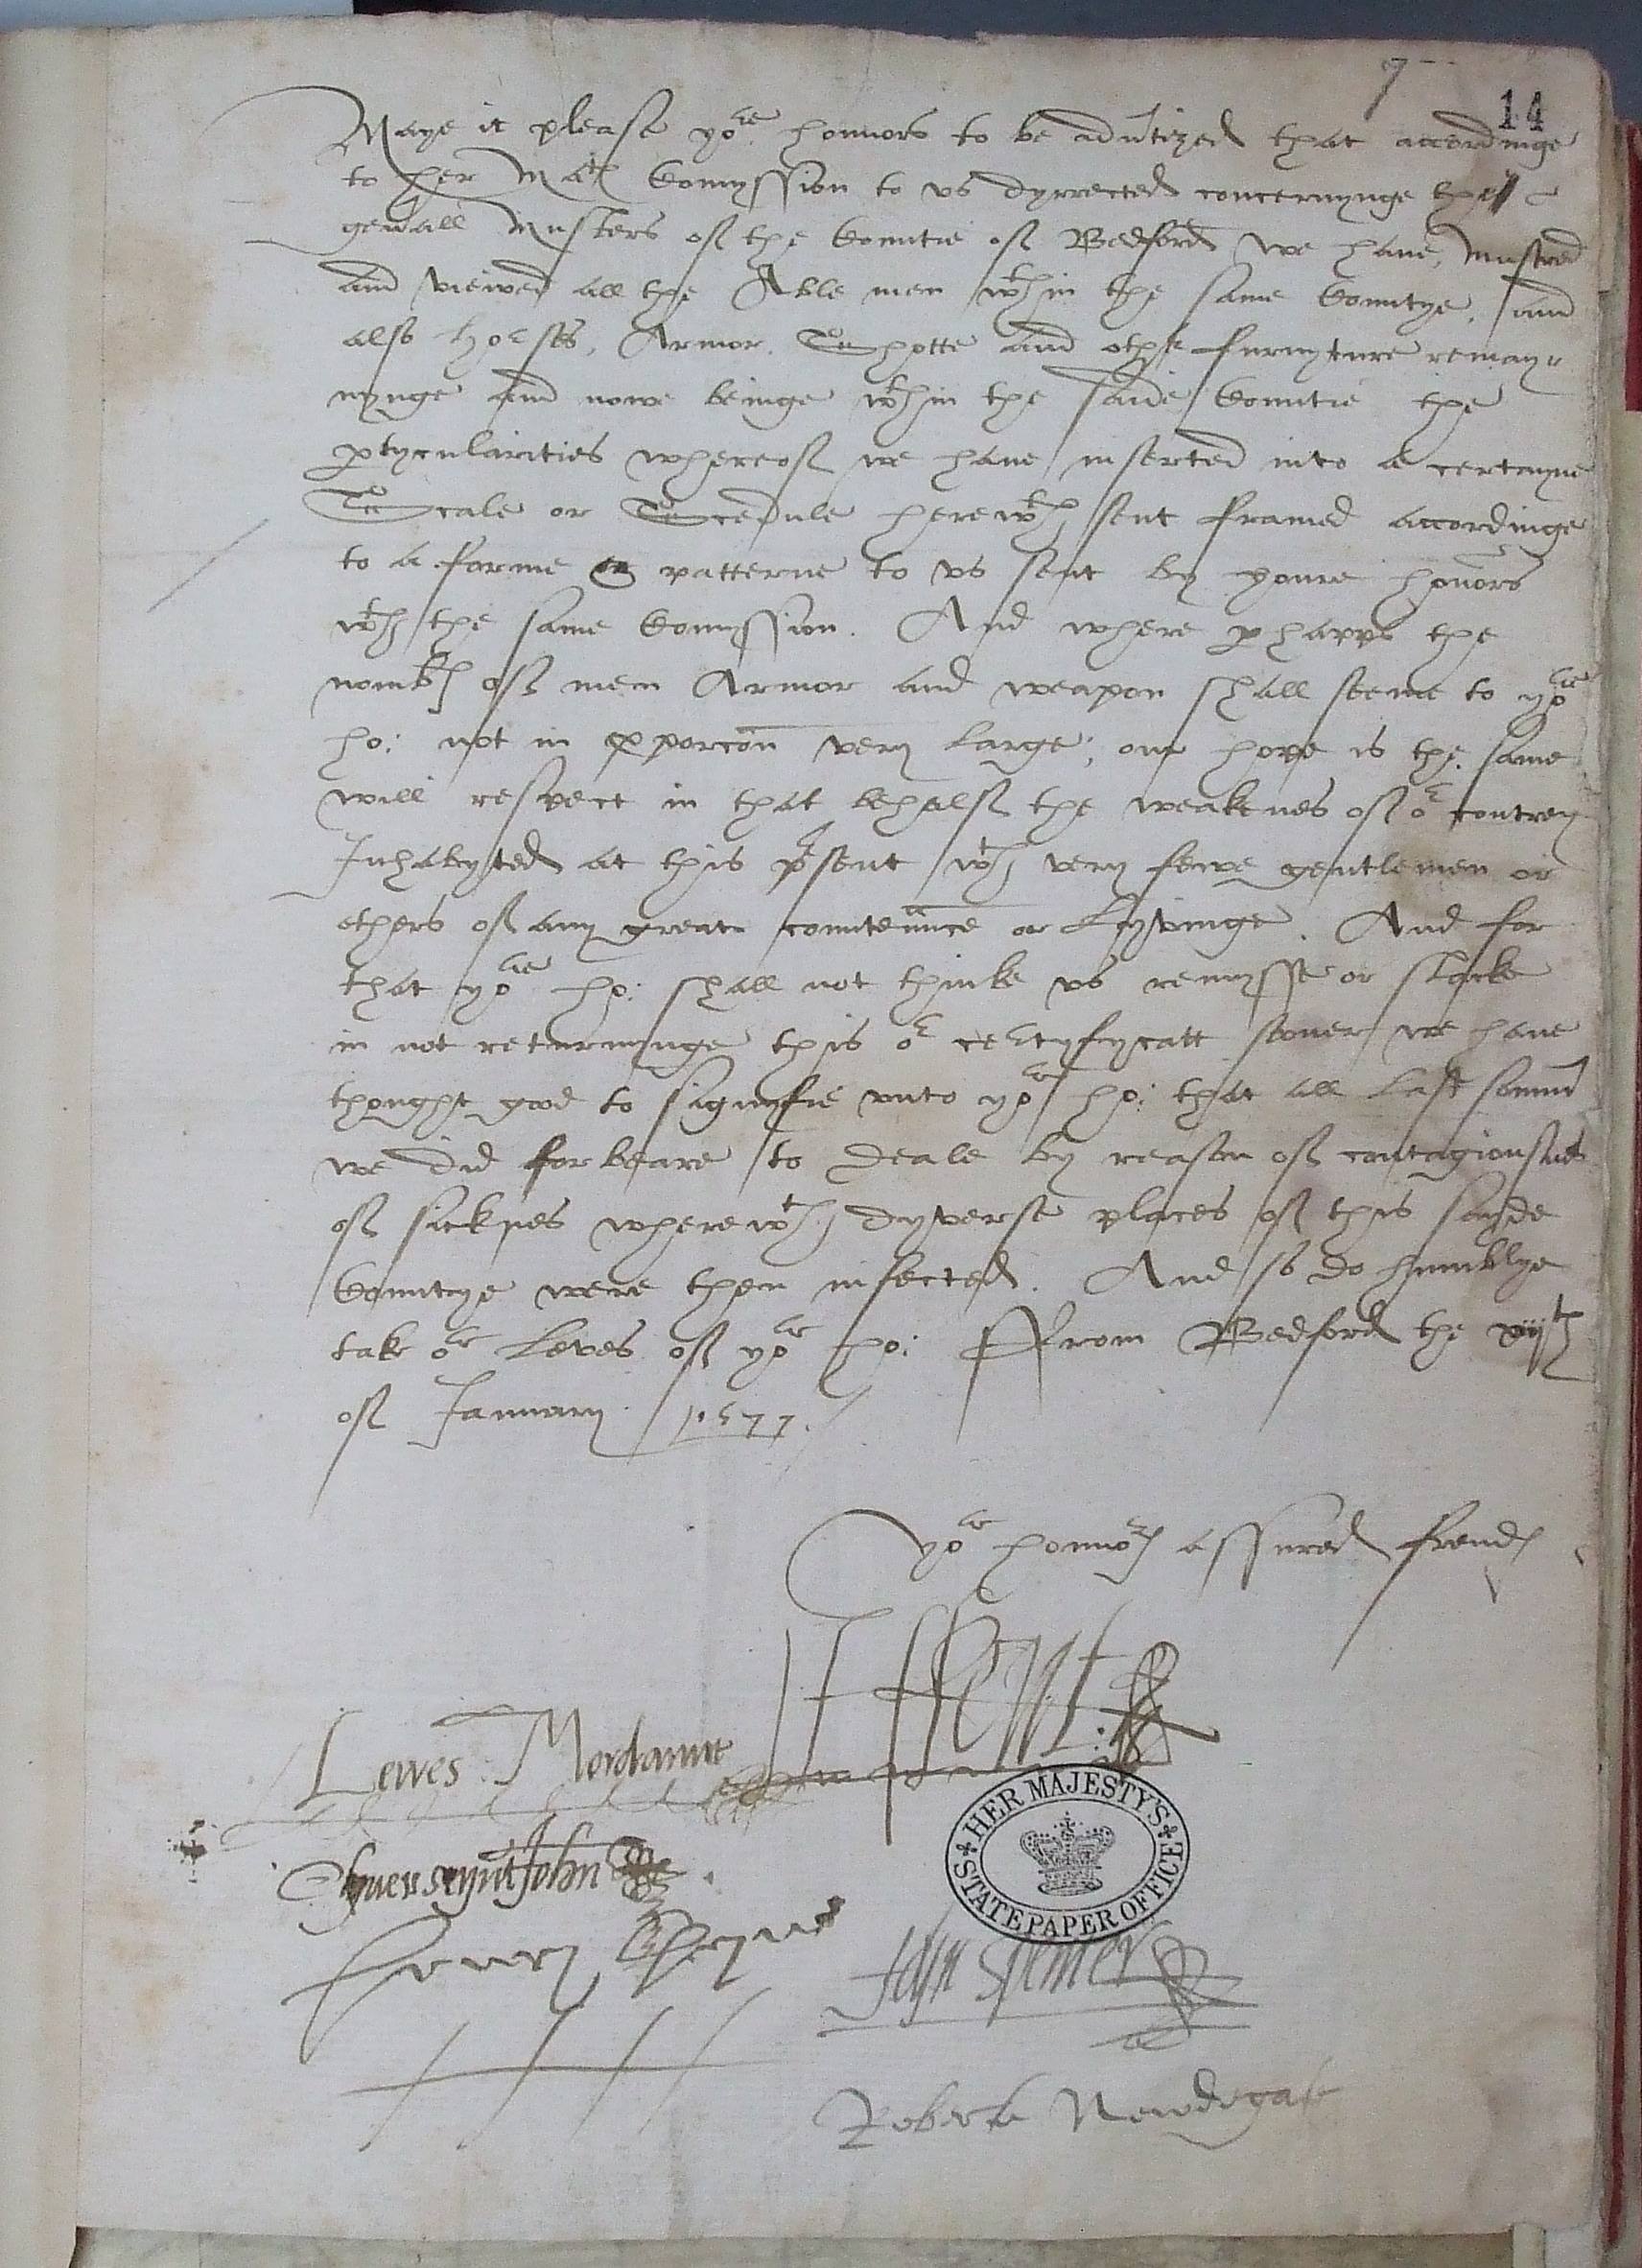 7
14
Maye it please yor honnors to be adu'tized that accordinge
to her Mats Comyssion to vs dyrrected concernynge the
gen'all Musters of the Countie of Bedford we haue, mustred
and viewed all the Able men wthin the same Countye, and
also horses, Armor, Shotte and other furnyture remay-
nynge and nowe beinge wthin the saide Countie the
ptyculairities whereof we haue inserted into a certayne
Scale or Scedule herewth sent framed accordinge
to a forme or patterne to vs sent by youre honors
wth the same Comyssion. And where phapps the
nombr of men Armor and weapon shall seeme to yor
ho: not in pporcon very large; our hope is the same
will respect in that behalf the weaknes of or contrey
Inhabyted at this psent wth very fewe gentlemen or
others of any great countenance or Lyvinge. And for
that yor ho: shall not thinke vs remysse or slacke
in not returnynge this or certyfycatt soner we haue
thought good to signyfie vnto yor ho: that all last somm'
we did forbeare to deale by reason of contagiousnes
of sicknes wherewth dyverse places of this sayde
Countye were then infected. And so do humblye
take or Leves of yor ho: ffrom Bedford the xijth
of January 1577.
yor honnors assured frends
Lewes Mordaunt
Olyuer seynt John
Henry Cheyne
HER MAJESTY'S STATE PAPER OFFICE
John Spencer
Roberte Newdegate